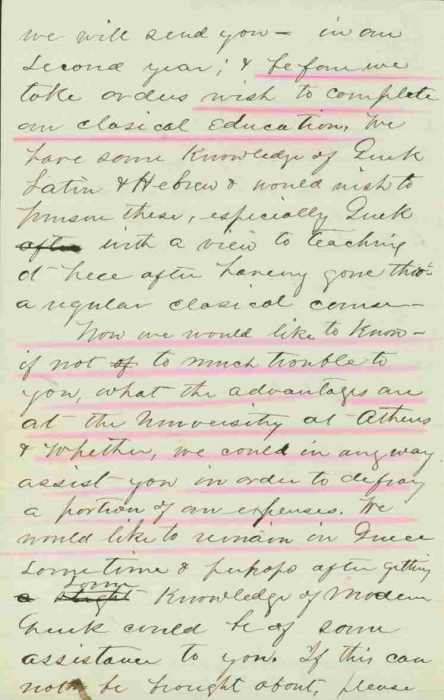 we will send you — in our
second year; & before we
take orders wish to complete
our clasical education. We
have some knowledge of Greek
Latin & Hebrew & would wish to
pursue these, especially Greek
after with a view to teaching
it here after having gone thro'
a regular clasical course —
Now we would like to know —
if not of to much trouble to
you, what the advantages are
at the University at Athens
& whether, we could in any way
assist you in order to defray
a portion of our expenses. We
would like to remain in Greece
sometime & perhaps after getting
some
a slight knowledge of Modern
Greek could be of some
assistance to you. If this can
not be brought about, please